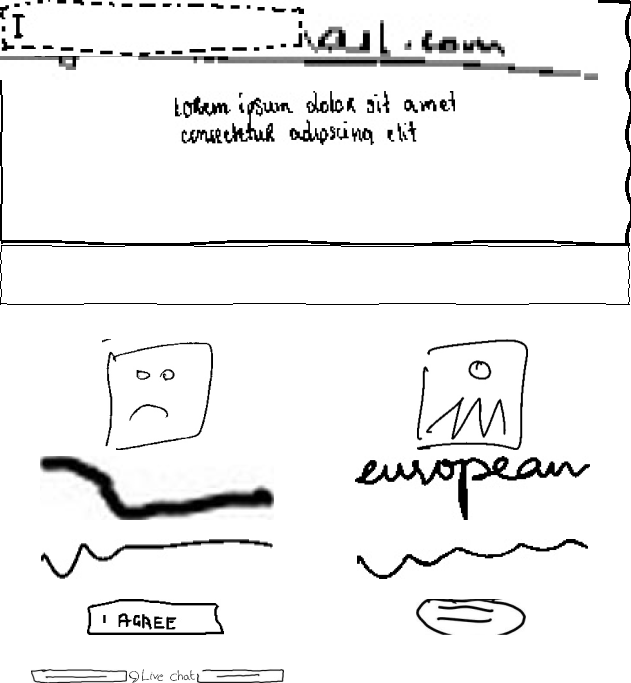 I
ail.com
Lorem ipsum dolor sit amet
consectetur adipscing elit
european
I AGREE
Live chat